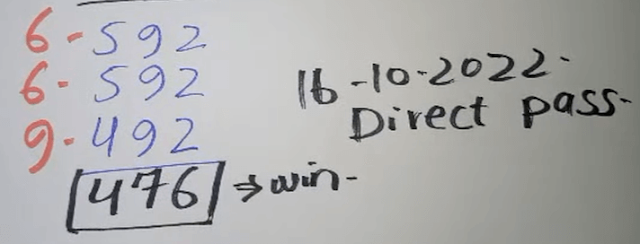 6-592
6-592
9-492
476 ⇒ win-
16-10-2022-
Direct pass-